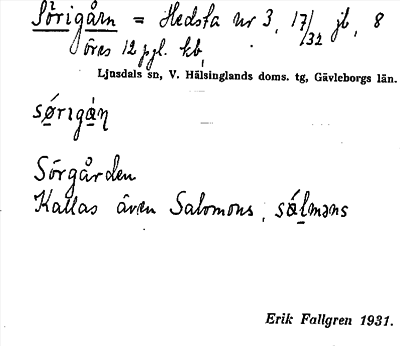 Sörigårn = Hedsta nr 3, 17/32 jb, 8
öres 12 pgl. kb,
Ljusdals sn, V. Hälsinglands doms. tg, Gävleborgs län.
sørıgȧn
Sörgården
Kallas även Salomons, sálməns
Erik Fallgren 1931.